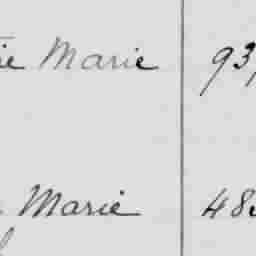 Marie 93
Marie 48